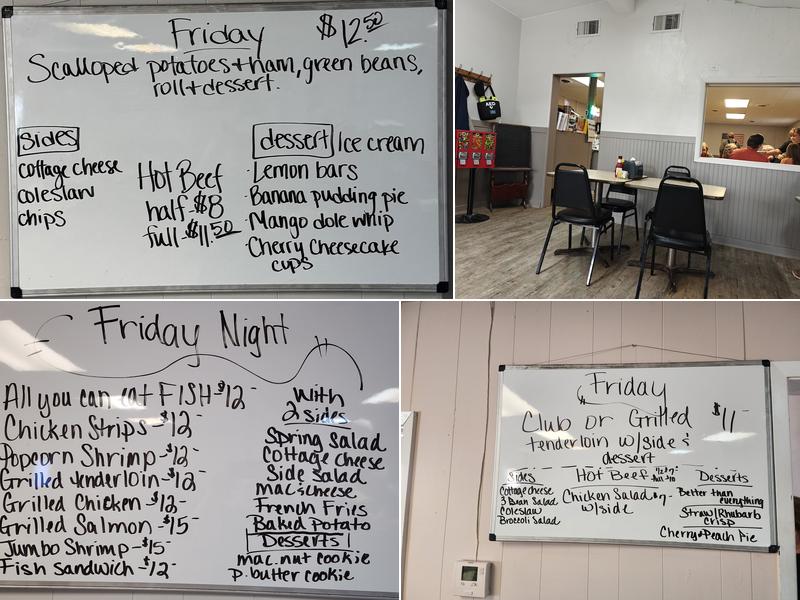 Friday $12.50
Scalloped potatoes + ham, green beans,
roll + dessert.
Sides
cottage cheese
coleslaw
chips
Hot Beef
half-$8
full-$11.50
dessert Ice cream
Lemon bars
Banana pudding pie
Mango dole whip
Cherry Cheesecake
cups
AED
Friday Night
All you can eat FISH-$12-
Chicken Strips-$12-
Popcorn Shrimp-$12-
Grilled tenderloin-$12-
Grilled Chicken-$12-
Grilled Salmon-$15-
Jumbo Shrimp-$15-
Fish Sandwich-$12-
With
2 sides
Spring Salad
Cottage Cheese
Side Salad
Mac & cheese
French Fries
Baked Potato
Desserts
mac. nut cookie
p. butter cookie
Friday
Club or Grilled $11-
tenderloin w/side &
dessert
Sides
Cottage cheese
3 Bean Salad
Coleslaw
Broccoli Salad
Hot Beef
Chicken Salad $7-
w/side
Desserts
Better than
everything
Straw/Rhubarb
crisp
Cherry + Peach Pie